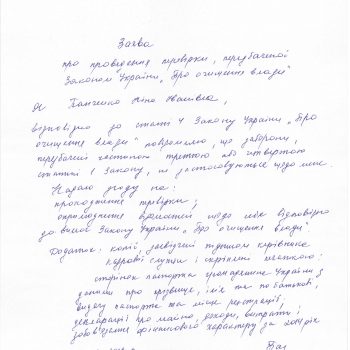 Заява
про проведення перевірки, передбаченої
Законом України „Про очищення влади"
Я, Панченко Ніна Іванівна,
відповідно до статті 4 Закону України „Про
очищення влади" повідомляю, що заборони,
передбачені частиною третьою або четвертою
статті 1 Закону, не застосовуються щодо мене.
Надаю згоду на:
проходження перевірки;
оприлюднення відомостей щодо себе відповідно
до вимог Закону України „Про очищення влади".
Додаток: копії, засвідчені підписом керівника
кадрової служби і скріплені печаткою:
сторінок паспорта громадянина України з
даними про прізвище, ім'я та по батькові,
видачу паспорта та місце реєстрації,
декларації про майно, доходи, витрати і
зобов'язання фінансового характеру за рік